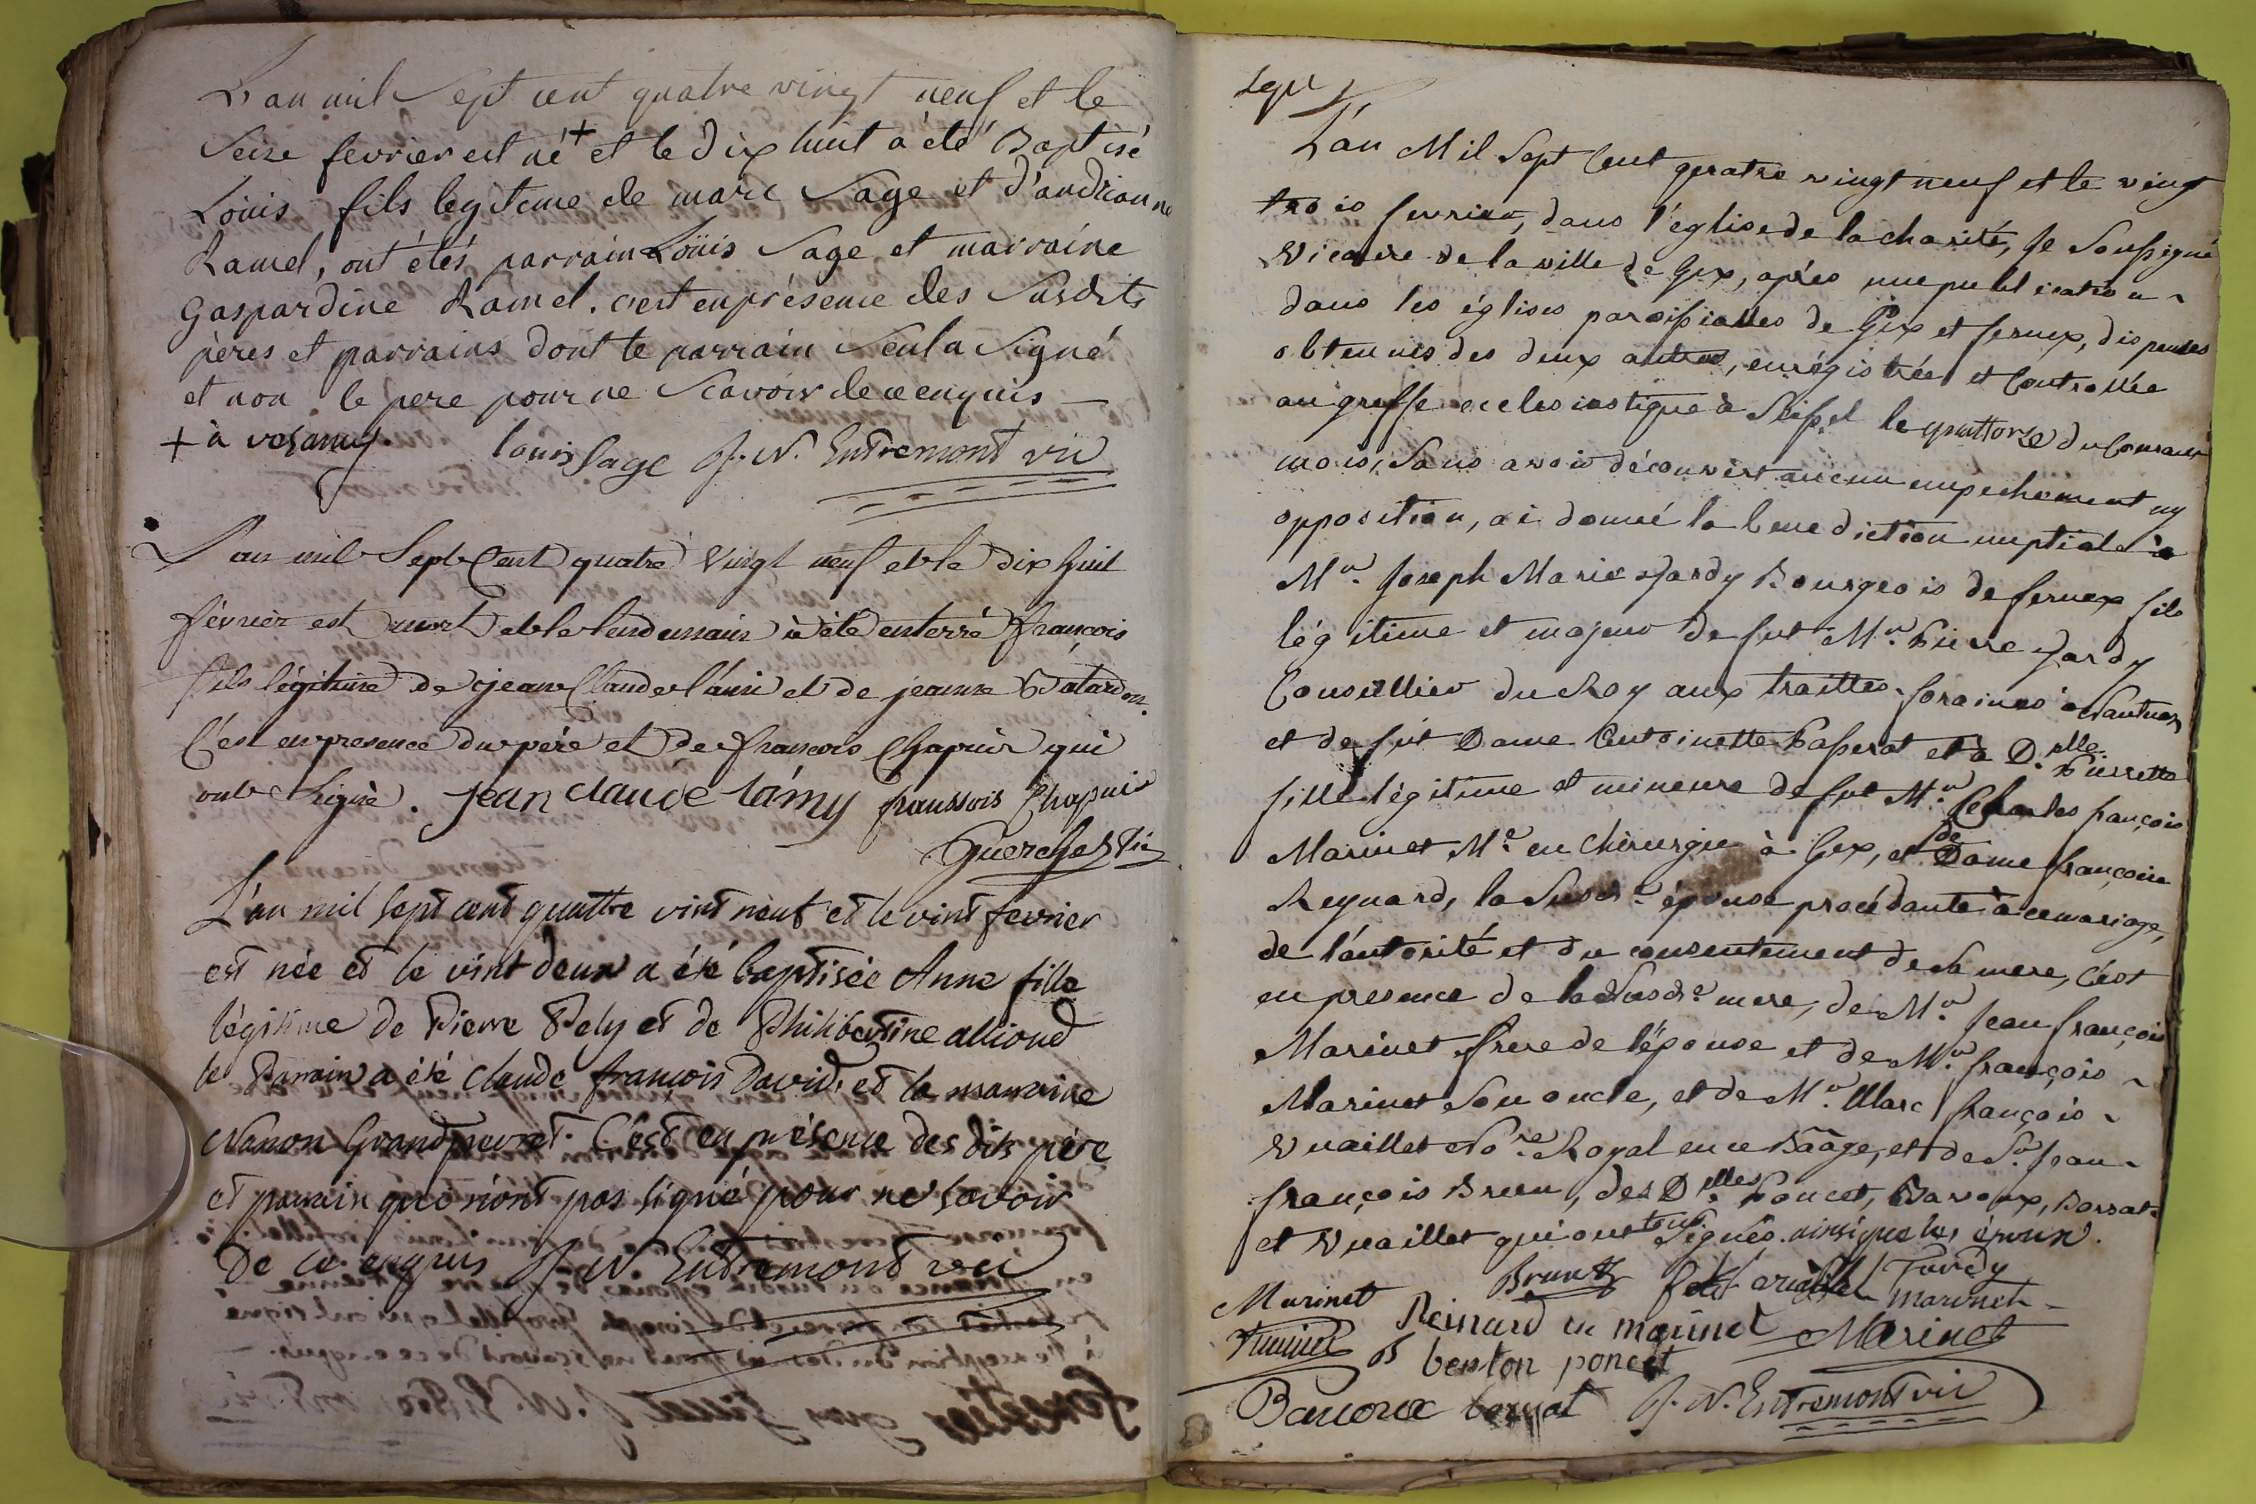 L'an mil Sept cent quatre vingt neuf et le
Seize fevrier est né + et le dix huit a été Baptisé
Louis fils legitime de marc Sage et d'andrianne
Ramel, ont étés parrain Loüis Sage et marraine
Gaspardine Ramel. c'est en présence des Susdits
pères et parrains dont le parrain Seul a Signé
et non le pere pour ne Scavoir de ce enquis —
+ à
louis Sage J. N. Entremont vic
L'an mil Sept Cent quatre vingt neuf et le dix huit
février est mort et le lendemain à été enterré françois
fils légitime de jean Claude l'ami et de jeanne Batardon.
C'est en presence du père et de françois Chapuis qui
ont Signé. jean claude lámy franssois Chapuis
Guerchet Vic
L'an mil sept cent quattre vint neuf et le vint fevrier
est née et le vint deux a été baptisée Anne fille
légitime de Pierre Pely et de Philibertine alliond
le Parrain a été claude françois David, et la marraine
Nanon Grandpierret. C'est en présence des dits père
et parrain qui n'ont pas signé pour ne savoir
De ce enquis J. N. Entremont vic
L'an Mil Sept Cent quatre vingt neuf et le vingt
trois fevrier, dans l'église de la charité, je Soussigné
Vicaire de la ville de Gex, après une publication
dans les églises paroissialles de Gex et fernex, dispenses
obtenues des deux autres, enrégistrée et Controllée
au greffe ecclesiastique à Seissel le quattorze du Courant
mois, Sans avoir découvert aucun empechement ny
opposition, ai donné la benediction nuptiale à
Mr. Joseph Marie Jardy Bourgeois de fernex fils
légitime et majeur de fut Mr. Pierre Jardy
Conseillier du Roy aux traittes foraines à Nantua,
et de fut Dame Antoinette Passerat et à D.elle Pierrette
fille légitime et mineure de fut Mr. Charles françois
Marinet Me. en chirurgie à Gex, et de Dame françoise
Reynard, la Susde. épouse procédante à ce mariage,
de l'autorité et du consentement de Sa mere, C'est
en presence de la Susde. mere, de Mr. Jean françois
Marinet frere de l'épouse et de Mr. françois
Marinet Son oncle, et de Mr. Marc françois
Vuaillet Nore. Royal en ce Baäge, et de Sr. Jean
françois Brun, des D.elles Poncet, Bavoux, Borsat
et Vuaillet qui ont tous Signés ainsi que les époux.
Brun Jardy
Marinet Reinard marinet
Marinet
benton poncet
Bavoux borsat J. N. Entremont vic